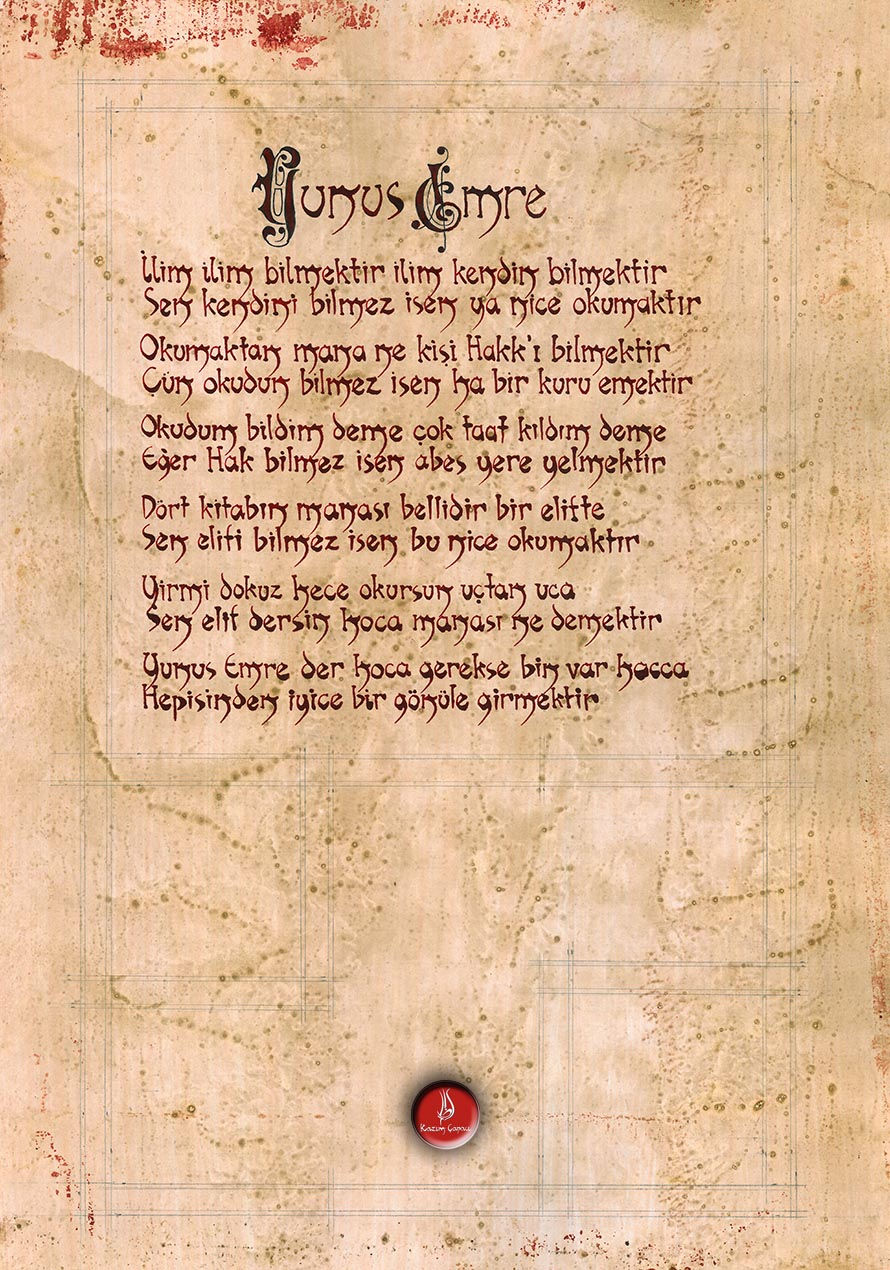 Yunus Emre
İlim ilim bilmektir ilim kendin bilmektir
Sen kendini bilmez isen ya nice okumaktır
Okumaktan mana ne kişi Hakk'ı bilmektir
Çün okudun bilmez isen ha bir kuru emektir
Okudum bildim deme çok taat kıldım deme
Eğer Hak bilmez isen abes yere yelmektir
Dört kitabın manası bellidir bir elifte
Sen elifi bilmez isen bu nice okumaktır
Yirmi dokuz hece okursun uçtan uca
Sen elif dersin hoca manası ne demektir
Yunus Emre der hoca gerekse bin var hacca
Hepisinden iyice bir gönüle girmektir
Kazım